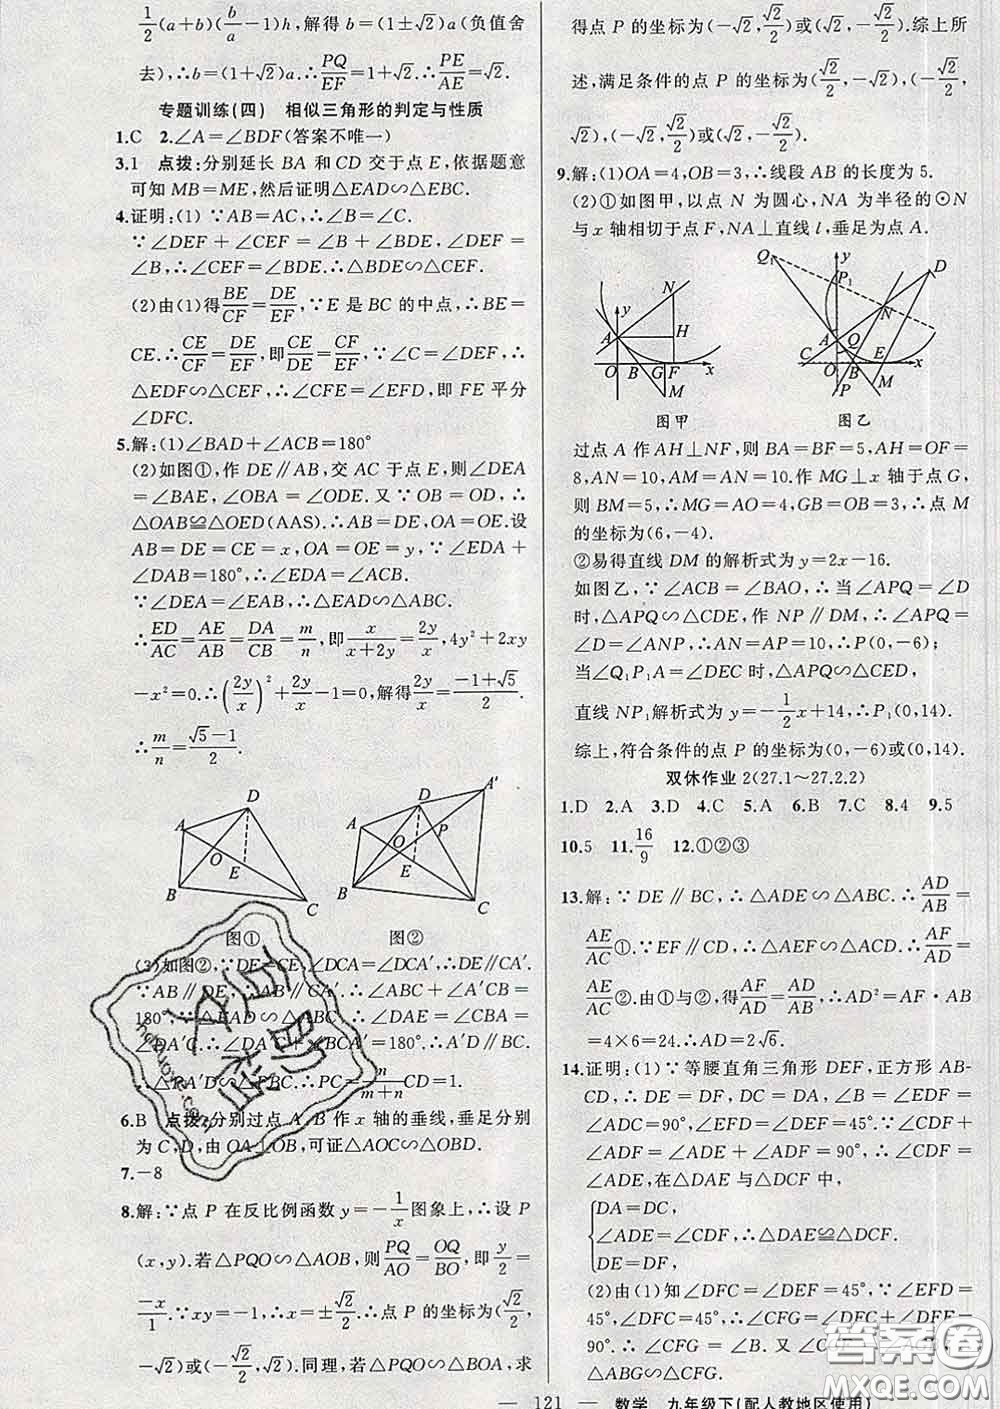 1/2(a+b)(b/a-1)h,解得 b=(1±√2)a(负值舍
去),∴b=(1+√2)a.∴PQ/EF=1+√2.∴PE/AE=√2.
专题训练(四) 相似三角形的判定与性质
1.C 2.∠A=∠BDF(答案不唯一)
3.1 点拨:分别延长 BA 和 CD 交于点 E,依据题意
可知 MB=ME,然后证明△EAD∽△EBC.
4.证明:(1)∵AB=AC,∴∠B=∠C.
∵∠DEF+∠CEF=∠B+∠BDE,∠DEF=
∠B,∴∠CEF=∠BDE.∴△BDE∽△CEF.
(2)由(1)得BE/CF=DE/EF,∵E 是 BC 的中点,∴BE=
CE.∴CE/CF=DE/EF,即CE/DE=CF/EF.∵∠C=∠DEF,∴
△EDF∽△CEF.∴∠CFE=∠EFD,即 FE 平分
∠DFC.
5.解:(1)∠BAD+∠ACB=180°
(2)如图①,作 DE∥AB,交 AC 于点 E,则∠DEA
=∠BAE,∠OBA=∠ODE.又∵OB=OD,∴
△OAB≌△OED(AAS).∴AB=DE,OA=OE.设
AB=DE=CE=x,OA=OE=y,∵∠EDA+
∠DAB=180°,∴∠EDA=∠ACB.
∵∠DEA=∠EAB,∴△EAD∽△ABC.
∴ED/AC=AE/AB=DA/CB=m/n,即x/(x+2y)=2y/x,4y²+2xy
-x²=0.∴(2y/x)²+2y/x-1=0,解得2y/x=(-1+√5)/2.
∴m/n=(√5-1)/2.
A D O E B C
A D A' O P E B C
图① 图②
(3)如图②,∵DE=CE,∠DCA=∠DCA',∴DE∥CA'.
∵AB∥DE,∴AB∥CA'.∴∠ABC+∠A'CB=
180°.∵△EAD∽△ABC,∴∠DAE=∠CBA=
∠DA'C.∴∠DA'C+∠A'CB=180°.∴A'D∥BC.
∴△PA'D∽△PBC.∴PC=n/(m+n)CD=1.
6.B 点拨:分别过点 A,B 作 x 轴的垂线,垂足分别
为 C,D,由 OA⊥OB,可证△AOC∽△OBD.
7.-8
8.解:∵点 P 在反比例函数 y=-1/x图象上,∴设 P
(x,y).若△PQO∽△AOB,则PQ/AO=OQ/BO,即y/2=
-x/1.∵xy=-1,∴x=±√2/2.∴点 P 的坐标为(√2/2,
-√2)或(-√2/2,√2).同理,若△PQO∽△BOA,求
得点 P 的坐标为(-√2,√2/2)或(√2,-√2/2).综上所
述,满足条件的点 P 的坐标为(√2/2,-√2),(-√2/2,
√2),(-√2,√2/2)或(√2,-√2/2).
9.解:(1)OA=4,OB=3,∴线段 AB 的长度为 5.
(2)①如图甲,以点 N 为圆心,NA 为半径的⊙N
与 x 轴相切于点 F,NA⊥直线 l,垂足为点 A.
y N A H O B G F x M
Q₁ y P₁ D N A Q C O B E x P M
图甲 图乙
过点 A 作 AH⊥NF,则 BA=BF=5,AH=OF=
8,AN=10,AM=AN=10.作 MG⊥x 轴于点 G,
则 BM=5,∴MG=AO=4,GB=OB=3,∴点 M
的坐标为(6,-4).
②易得直线 DM 的解析式为 y=2x-16.
如图乙,∵∠ACB=∠BAO,∴当∠APQ=∠D
时,△APQ∽△CDE,作 NP∥DM,∴∠APQ=
∠D=∠ANP,∴AN=AP=10,∴P(0,-6);
当∠Q₁P₁A=∠DEC 时,△APQ∽△CED,
直线 NP₁解析式为 y=-1/2x+14,∴P₁(0,14).
综上,符合条件的点 P 的坐标为(0,-6)或(0,14).
双休作业 2(27.1~27.2.2)
1.D 2.A 3.D 4.C 5.A 6.B 7.C 8.4 9.5
10.5 11.16/9 12.①②③
13.解:∵DE∥BC,∴△ADE∽△ABC.∴AD/AB=
AE/AC①.∵EF∥CD,∴△AEF∽△ACD.∴AF/AD=
AE/AC②.由①与②,得AF/AD=AD/AB,∴AD²=AF·AB
=4×6=24.∴AD=2√6.
14.证明:(1)∵等腰直角三角形 DEF,正方形 AB-
CD,∴DF=DE,DA=DC,∠ADC=∠B=
∠EDF=90°,∠DEF=45°.∵∠CDF+
∠ADF=∠ADE+∠ADF=90°,∴∠CDF=
∠ADE,在△DAE 与△DCF 中,
DA=DC,
∠ADE=∠CDF,∴△DAE≌△DCF.
DE=DF,
(2)由(1)知∠DFC=∠DEF=45°,∵∠EFD=
45°,∠DFC=45°,∴∠CFG=∠DFC+∠DFE=
90°.∴∠CFG=∠B.又∠
△ABG∽△CFG.
— 121 — 数学 九年级下(配人教地区使用)
答案圈
MXQE.COM